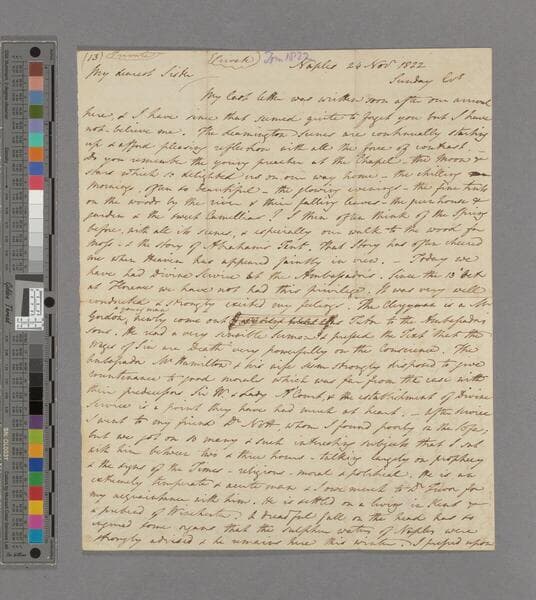 (13) Private (Private) Tom 1822 Naples 24 Nov 1822
My dearest Sister Sunday Evg
My last letter was written soon after our arrival
here, & I have since that seemed quite to forget you but I have
not believe me. The Leamington Scenes are continually starting
up & afford pleasing reflection with all the force of contrast.
Do you remember the young preacher at the Chapel - the Moon &
stars which so delighted us on our way home - the chilling
mornings often so beautiful - the glowing evenings - the fine tints
on the woods by the river & their falling leaves - the greenhouse &
garden & the sweet Camellias? I then often think of the Spring
before, with all its scenes, & especially our walk to the wood for
Moss - & the story of Abrahams Tent. That Story has often cheered
me when Heaven has appeared faintly in view. - Today we
have had Divine Service at the Ambassadors. Since the 13 Oct
at Florence we have not had this privilege. It was very well
conducted & strongly excited my feelings. The Clergyman is a Mr
Gordon, young man newly come out as Tutor to the Ambassadors
sons. He read a very sensible Sermon & pressed the Text that the
Wages of Sin are Death very powerfully on the Conscience. The
Ambassador Mr Hamilton & his wife seem strongly disposed to give
countenance to good morals which was far from the case with
their predecessors Sir Wm & Lady A'Court, & the establishment of Divine
Service is a point they have had much at heart. - After service
I went to my friend Dr Nott whom I found poorly on the Sofa,
but we got on so many & such interesting subjects that I sat
with him between two & three hours - talking largely on prophecy
& the signs of the Times - religious - moral & political. He is an
extremely temperate & acute man & I owe much to Dr for
my acquaintance with him. He is settled on a living in Kent &
a prebend of Winchester. A dreadful fall on the head has so
injured some organs that the sulphur waters of Naples were
strongly advised & he remains here this winter. I pressed upon